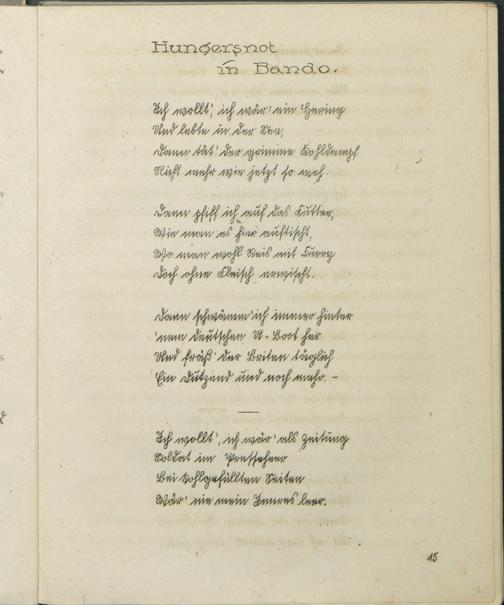 Hungersnot
in Bando.
Ich wollt', ich wär' ein Hering
Und lebte in der See,
Dann tät' der grimme Kohldampf
Nicht mehr wie jetzt so weh.
Dann pfiff ich auf das Futter,
Wie man es hier auftischt,
Wo man wohl Reis mit Curry
Doch ohne Fleisch erwischt.
Dann schwämm' ich immer hinter
'nem deutschen U-Boot her
Und fräß' der Briten täglich
Ein Dutzend und noch mehr. –
Ich wollt', ich wär' als Zeitung
Soldat im Presseheer
Bei kohlgefüllten Seiten
Wär' nie mein Inneres leer.
15